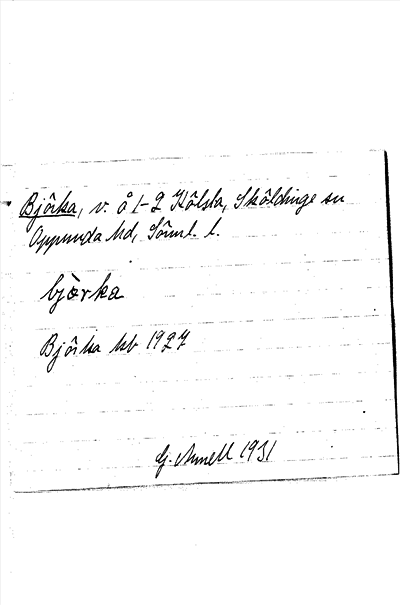 Björka, v. å 1-2 Hölsta, Sköldinge sn
Oppunda hd, Söml. l.
björka
Björka kb 1927
G. Annell 1931